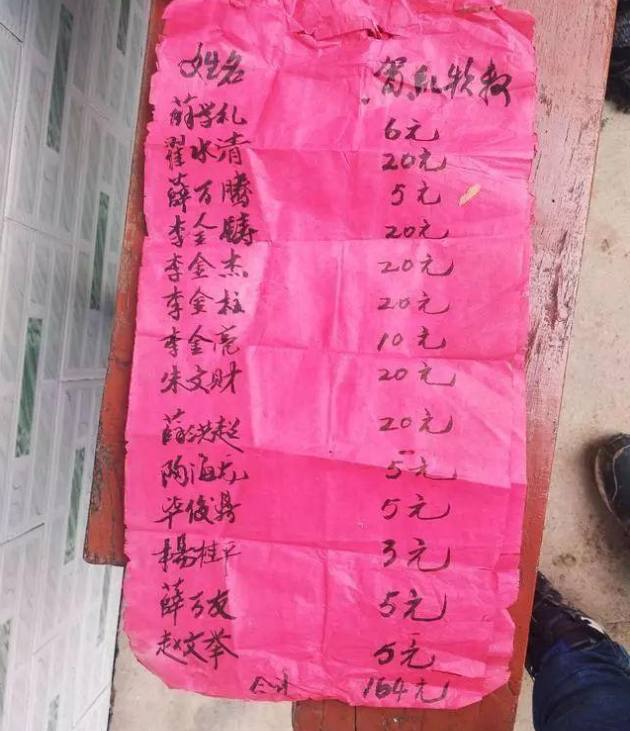 姓名 贺礼钱数
薛学礼 6元
翟水清 20元
薛万腾 5元
李金 20元
李金杰 20元
李金柱 20元
李金亮 10元
朱文财 20元
薛洪超 20元
陶海龙 5元
毕俊 5元
楊桂平 3元
薛万友 5元
赵文举 5元
合计 164元